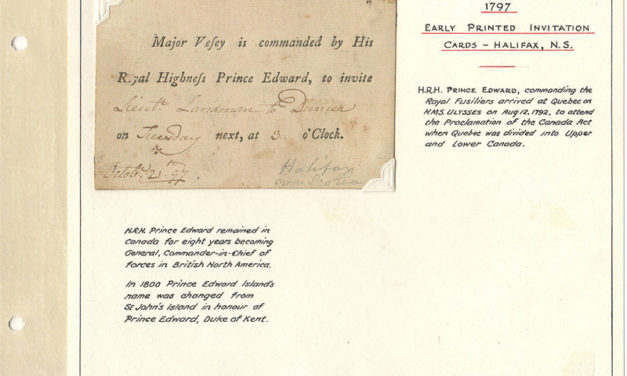 Major Veſey is commanded by His
Royal Highneſs Prince Edward, to invite
Lieut. Landman to Dinner
on Tuesday next, at 3 o'Clock.
Octobr. 23th 97.
Halifax
Nova Scotia
1797
EARLY PRINTED INVITATION
CARDS - HALIFAX, N.S.
H.R.H. PRINCE EDWARD, commanding the
Royal Fusiliers arrived at Quebec on
H.M.S. ULYSSES on Aug 12, 1792, to attend
the Proclamation of the Canada Act
when Quebec was divided into Upper
and Lower Canada.
H.R.H. Prince Edward remained in
Canada for eight years becoming
General, Commander-in-Chief of
forces in British North America.
In 1800 Prince Edward Island's
name was changed from
St John's Island in honour of
Prince Edward, Duke of Kent.